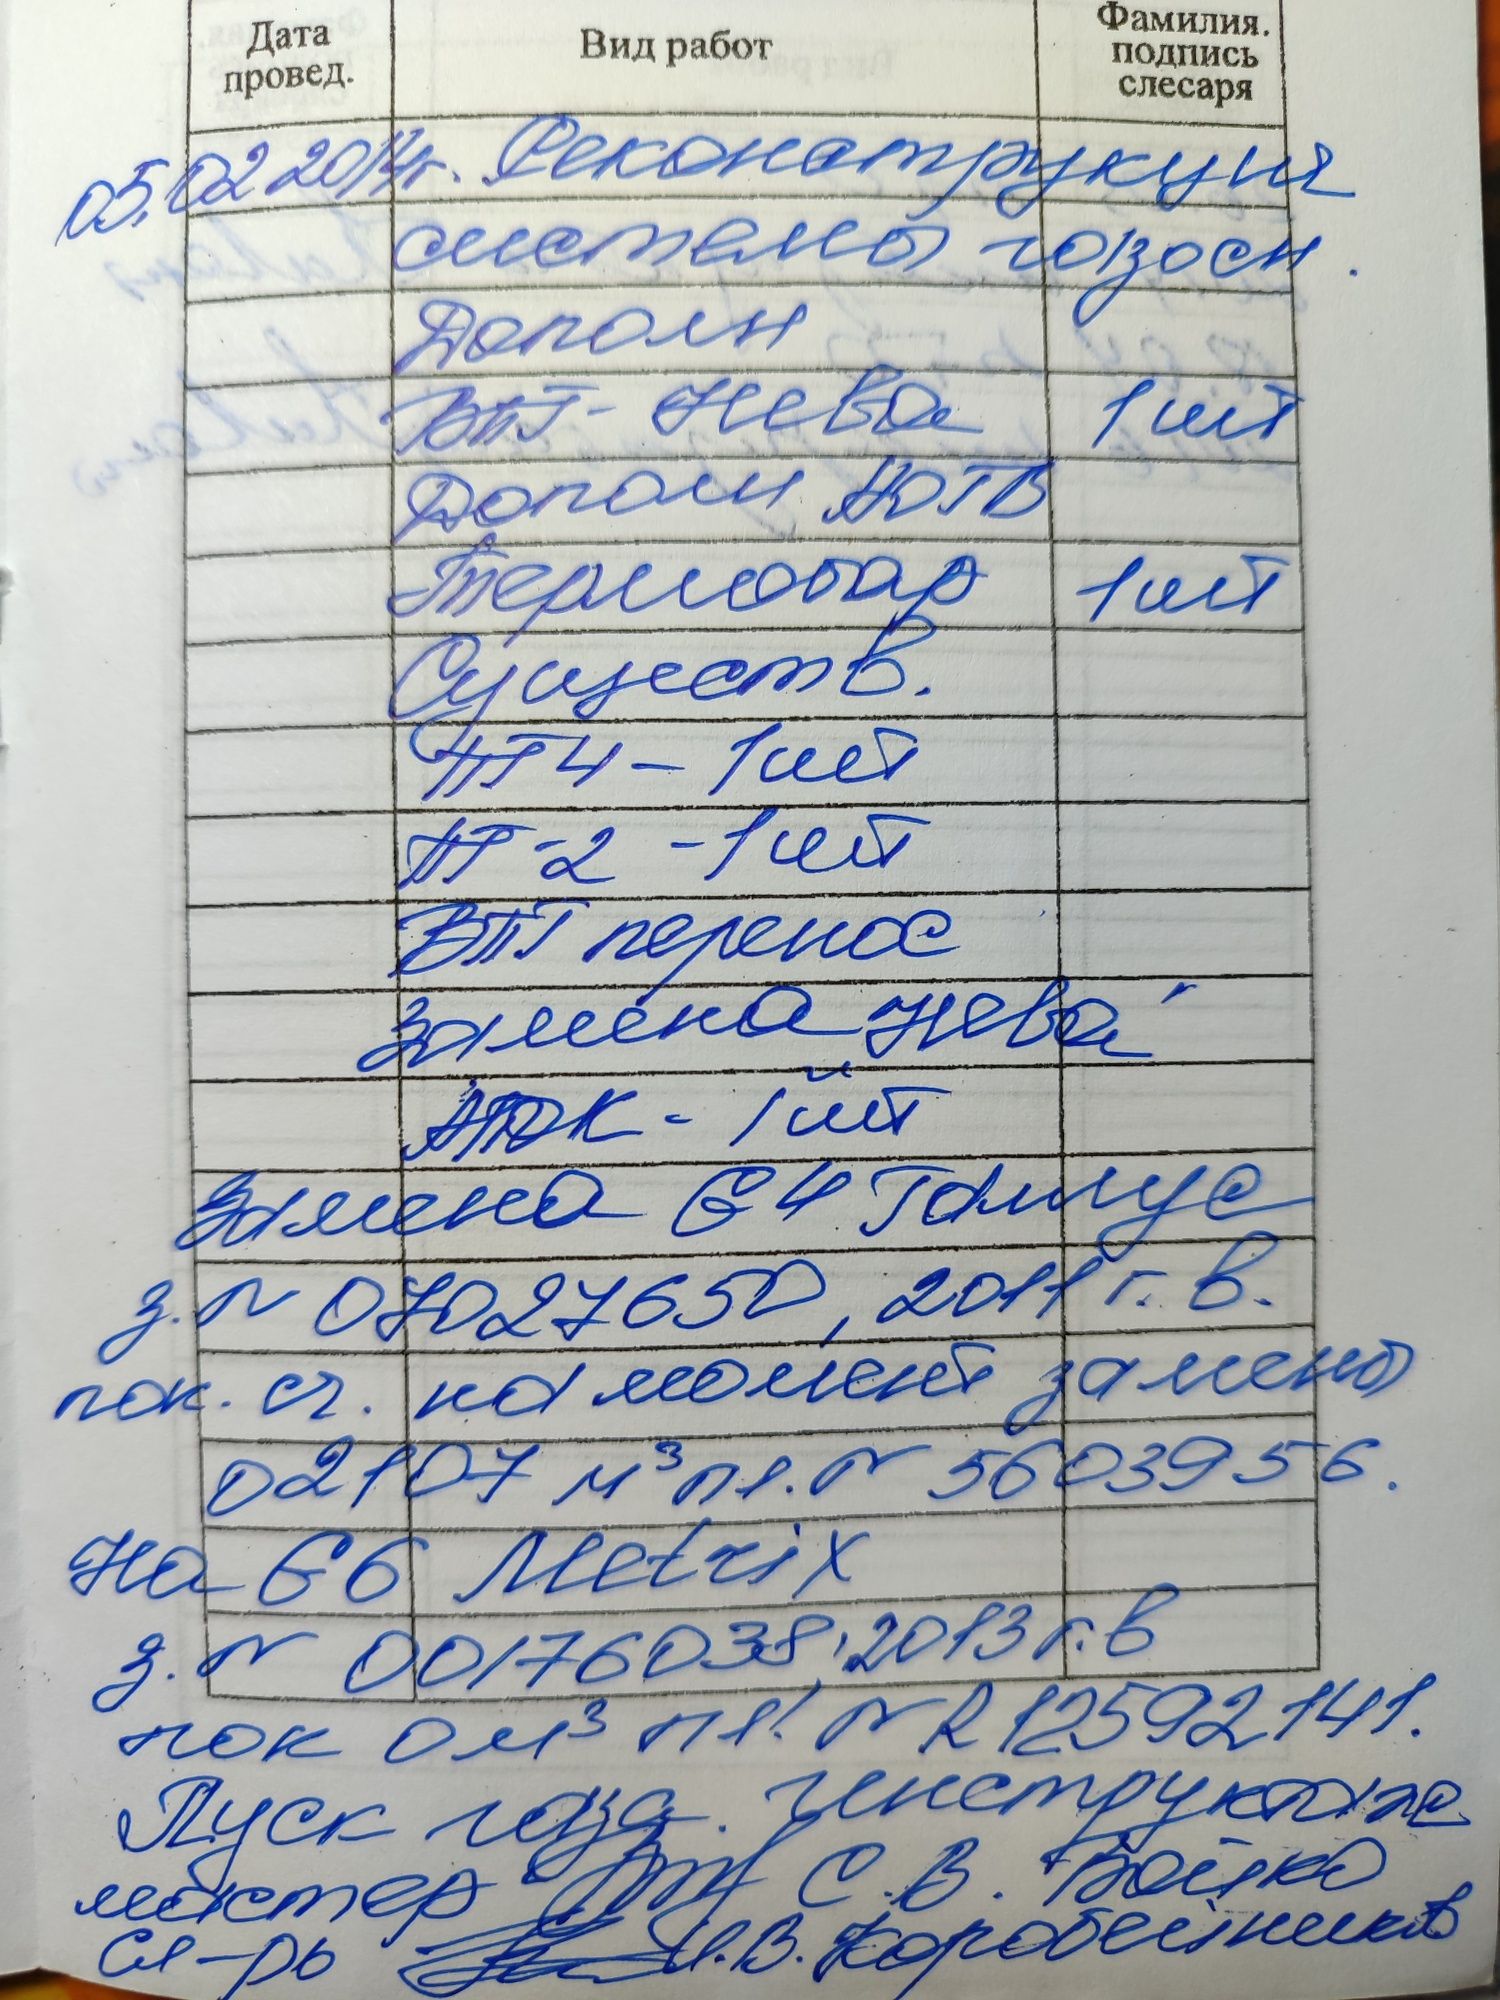 Дата провед.
Вид работ
Фамилия. подпись слесаря
05.02 2014г. Реконструкция
системы газосн.
Дополн
ВПГ- Нева 1 шт
Дополн АОГВ
Термобар 1 шт
Существ.
ПГ4 - 1 шт
ПГ-2 - 1 шт
ВПГ перенос
Замена Нева"
- 1 шт
Замена G4 Галлус
з.N 07027650, 2011 г.в.
пок. сч. на момент замены
02107 м³ пл. N 5603956.
На G6 Metrix
з.N 00176038, 2013 г.в
пок 0 м³ пл. N R12592141.
Пуск газа. Инструктаж
мастер С.В. Бойко
Сл-рь В. Коробейников